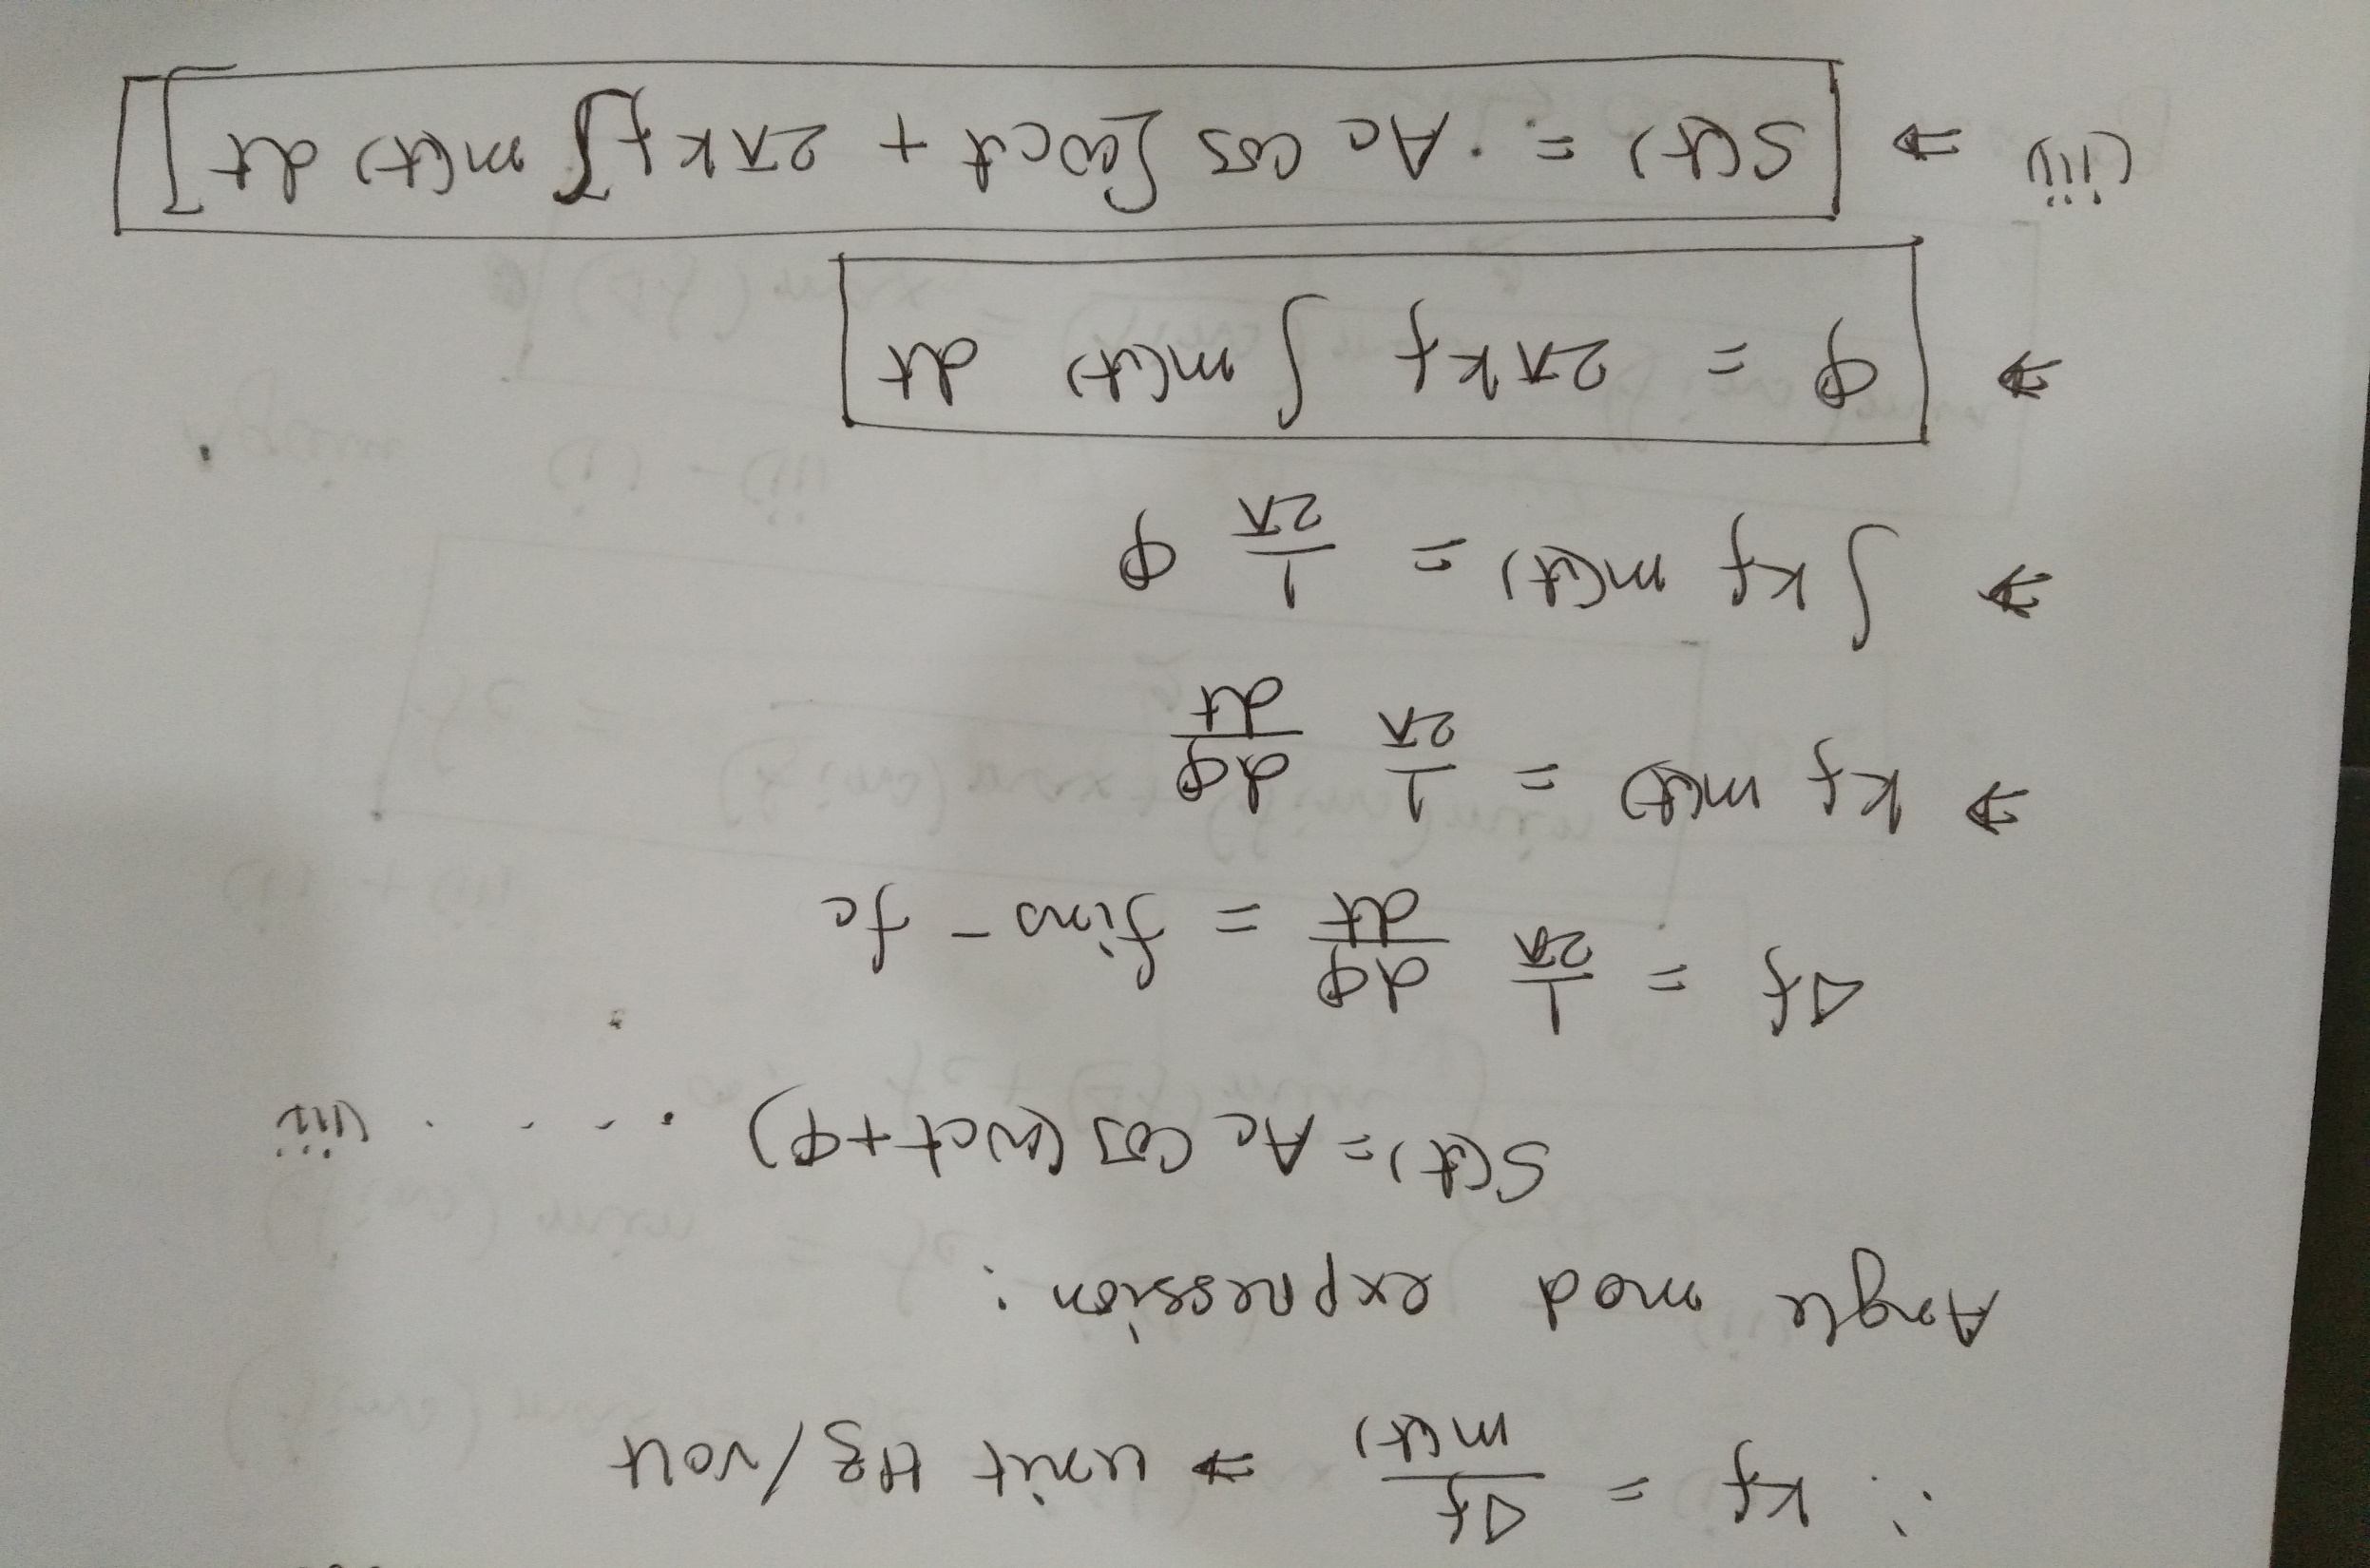 ∴ Kf = Δf / m(t) ⇒ unit Hz/volt
Angle mod expression:
S(t) = Ac cos(ωct+φ) . . . . (iii)
Δf = 1/2π dφ/dt = fins - fc
⇒ Kf m(t) = 1/2π dφ/dt
⇒ ∫ Kf m(t) = 1/2π φ
⇒ φ = 2πKf ∫ m(t) dt
(iii) ⇒ S(t) = Ac cos[ωct + 2πKf ∫ m(t) dt]